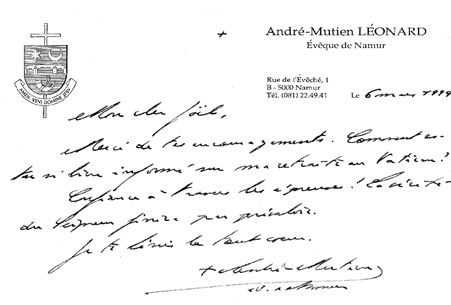 +
André-Mutien LÉONARD
Évêque de Namur
AMEN VENI DOMINE JESU
Rue de l'Évêché, 1
B - 5000 Namur
Tél. (081) 22.49.41
Le 6 mars 1999
Mon cher Joël,
Merci de tes encouragements. Comment es-
tu si bien informé sur ma retraite au Vatican?
Confiance à travers les épreuves! La vérité
du Seigneur finira par prévaloir.
Je te bénis de tout cœur.
+ André-Mutien
év. de Namur